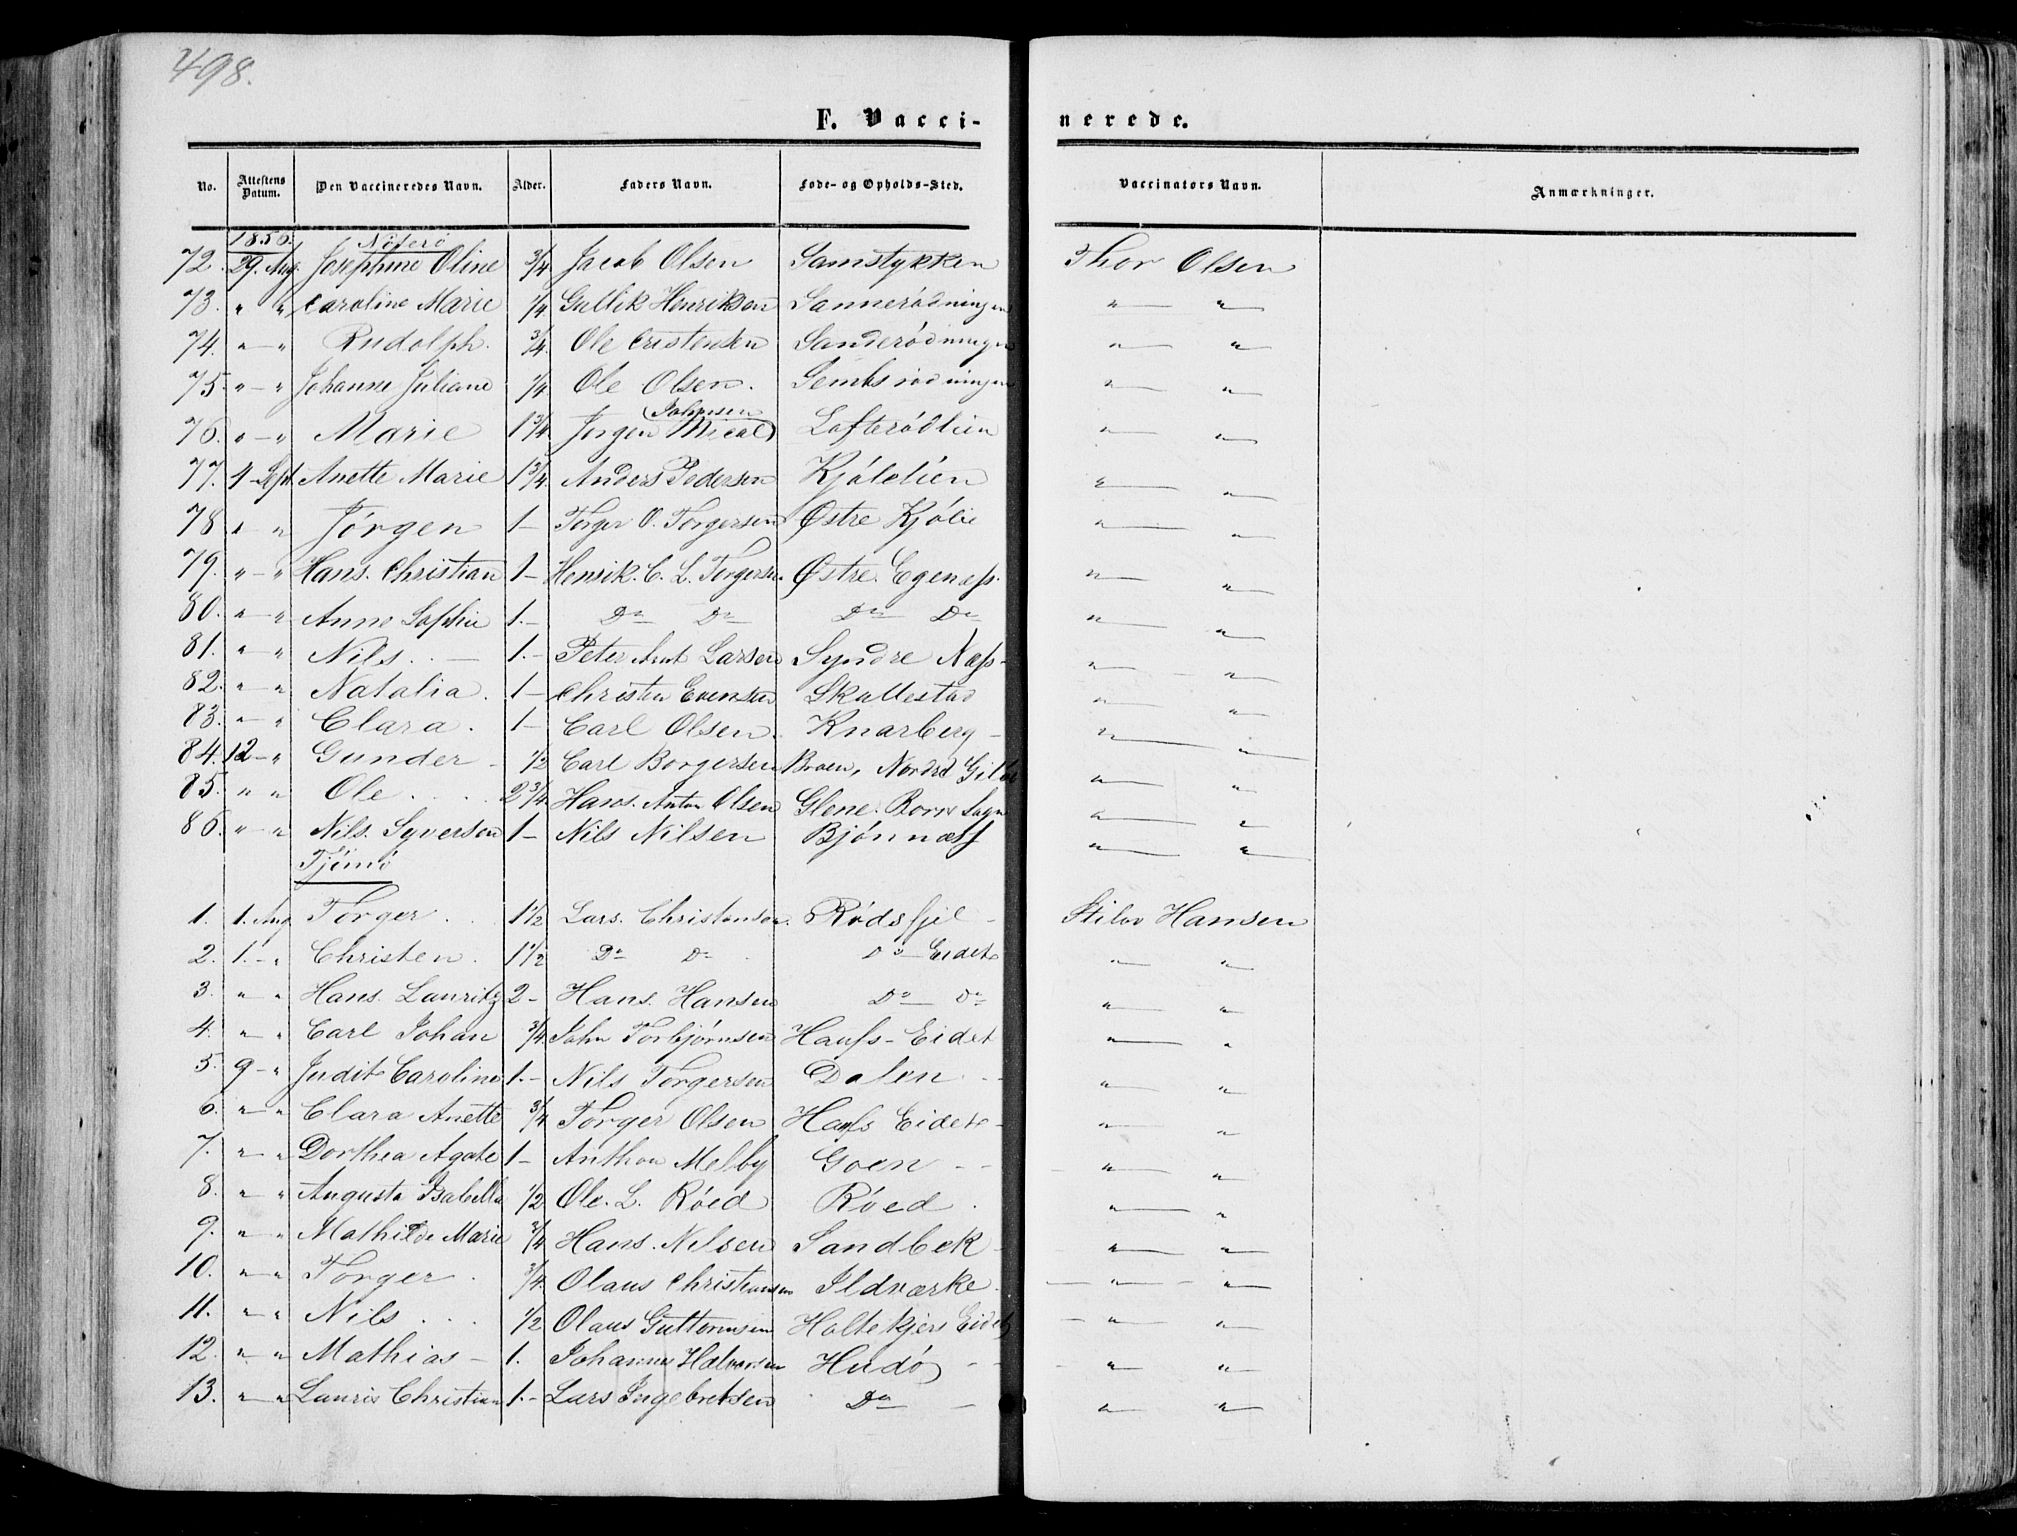 498.
F. Vaccinerede.
No. Attestens Datum. Den Vaccineredes Navn. Alder. Faders Navn. Føde- og Opholds-Sted. Vaccinators Navn. Anmærkninger.
1856. Nøterø
72. 29. Aug. Josephine Oline 3/4 Jacob Olsen Samstykken Thor Olsen
73. " " Caroline Marie 1/4 Gullik Henriksen Sannerødningen " "
74. " " Rudolph. 3/4. Ole Cristensen Sanderødningen " "
75. " " Johanne Juliane 1/4 Ole Olsen. " "
(Johnsen
76. " " Marie 1 3/4 Jørgen Mical) Lofterødlien " "
77. 1 Sept. Anette Marie 1 3/4 Anders Pedersen " "
78 " " Jörgen 1- Torger O. Torgersen Østre Kjölie " "
79. " " Hans. Christian 1- Henrik. C. L. Torgersen. Østre. Egenæss. " "
80. " " Anne Sophie 1.- Do Do Do Do " "
81. " " Nils. 1.- Peter Arnt Larsen Syndre Næss- " "
82. " " Natalia. 1- Christen Evensen Skallestad " "
83. " " Clara. 1- Carl Olsen. Knarberg - " "
84. 12 " Gunder - 1/2 Carl Borgersen Broen, Nordre " "
85. " " Ole . . . . 2 3/4. Hans. Anton Olsen Glene. Borre Sogn " "
86. " " Nils. Syversen 1- Nils Nilsen Bjönnæss " "
Tjömö
1. 1. Aug Torger . . 1 1/2 Lars. Christensen. Rödsfjel - Hansen
2. 1.- " Christen. 1 1/2 Do Do Do Eidet " "
3. " " Hans. Lauritz 2- Hans. Hansen Do Do " "
4. " " Carl Johan 3/4 John Torbjörnsen Hauss-Eidet " "
5. 9- " Judit Caroline 1.- Nils Torgersen Dalen - - " "
6. " " Clara Anette 3/4 Torger Olsen Hauss Eidet- " "
7. " " Dorthea Agate 1- Anthon Melby Goen - - " "
8. " " Augusta Isabella 1/2 Ole. L. Röed Röed . " "
9. " " Mathilde Marie 3/4 Hans. Nilsen Sandbek " "
10. " " Torger . 3/4. Olaus Christiansen Ildværke. " "
11. " " Nils . . . 1/2 Olaus Guttormsen Holtekjær Eidet " "
12. " " Mathias - 1. Johannes Halvorsen Hudö - " "
13. " " Lauris Christian 1.- Lars Ingebretsen Do - " "